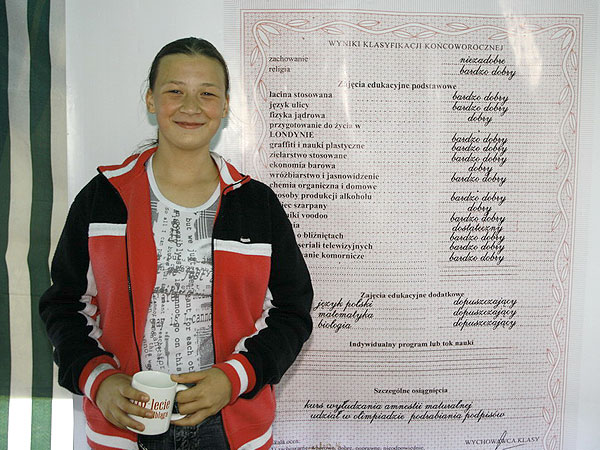 WYNIKI KLASYFIKACJI KOŃCOWOROCZNEJ
zachowanie niezadobre
religia bardzo dobry
Zajęcia edukacyjne podstawowe
łacina stosowana bardzo dobry
język ulicy bardzo dobry
fizyka jądrowa dobry
przygotowanie do życia w
LONDYNIE bardzo dobry
graffiti i nauki plastyczne bardzo dobry
zielarstwo stosowane bardzo dobry
ekonomia barowa dobry
wróżbiarstwo i jasnowidzenie bardzo dobry
chemia organiczna i domowe
sposoby produkcji alkoholu bardzo dobry
szarpany dobry
voodoo bardzo dobry
dostateczny
o bliźniętach bardzo dobry
seriali telewizyjnych bardzo dobry
komornicze bardzo dobry
Zajęcia edukacyjne dodatkowe
język polski dopuszczający
matematyka dopuszczający
biologia dopuszczający
Indywidualny program lub tok nauki
Szczególne osiągnięcia
kurs wyłudzania amnestii maturalnej
udział w olimpiadzie podrabiania podpisów
WYCHOWAWCA KLASY
lecie